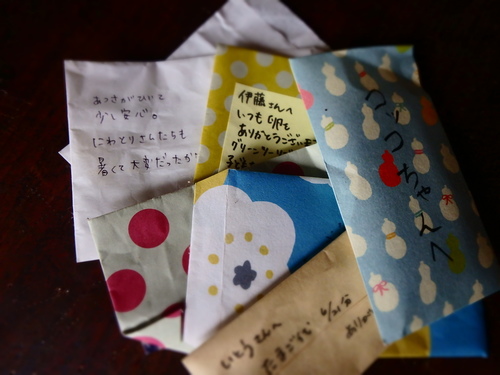 あつさがひいて
少し安心。
にわとりさんたちも
暑くて大変だったか
伊藤さんへ
いつも卵を
ありがとうござい
グリーンツーリ
コッコちゃんへ
いとうさんへ
たまごだい